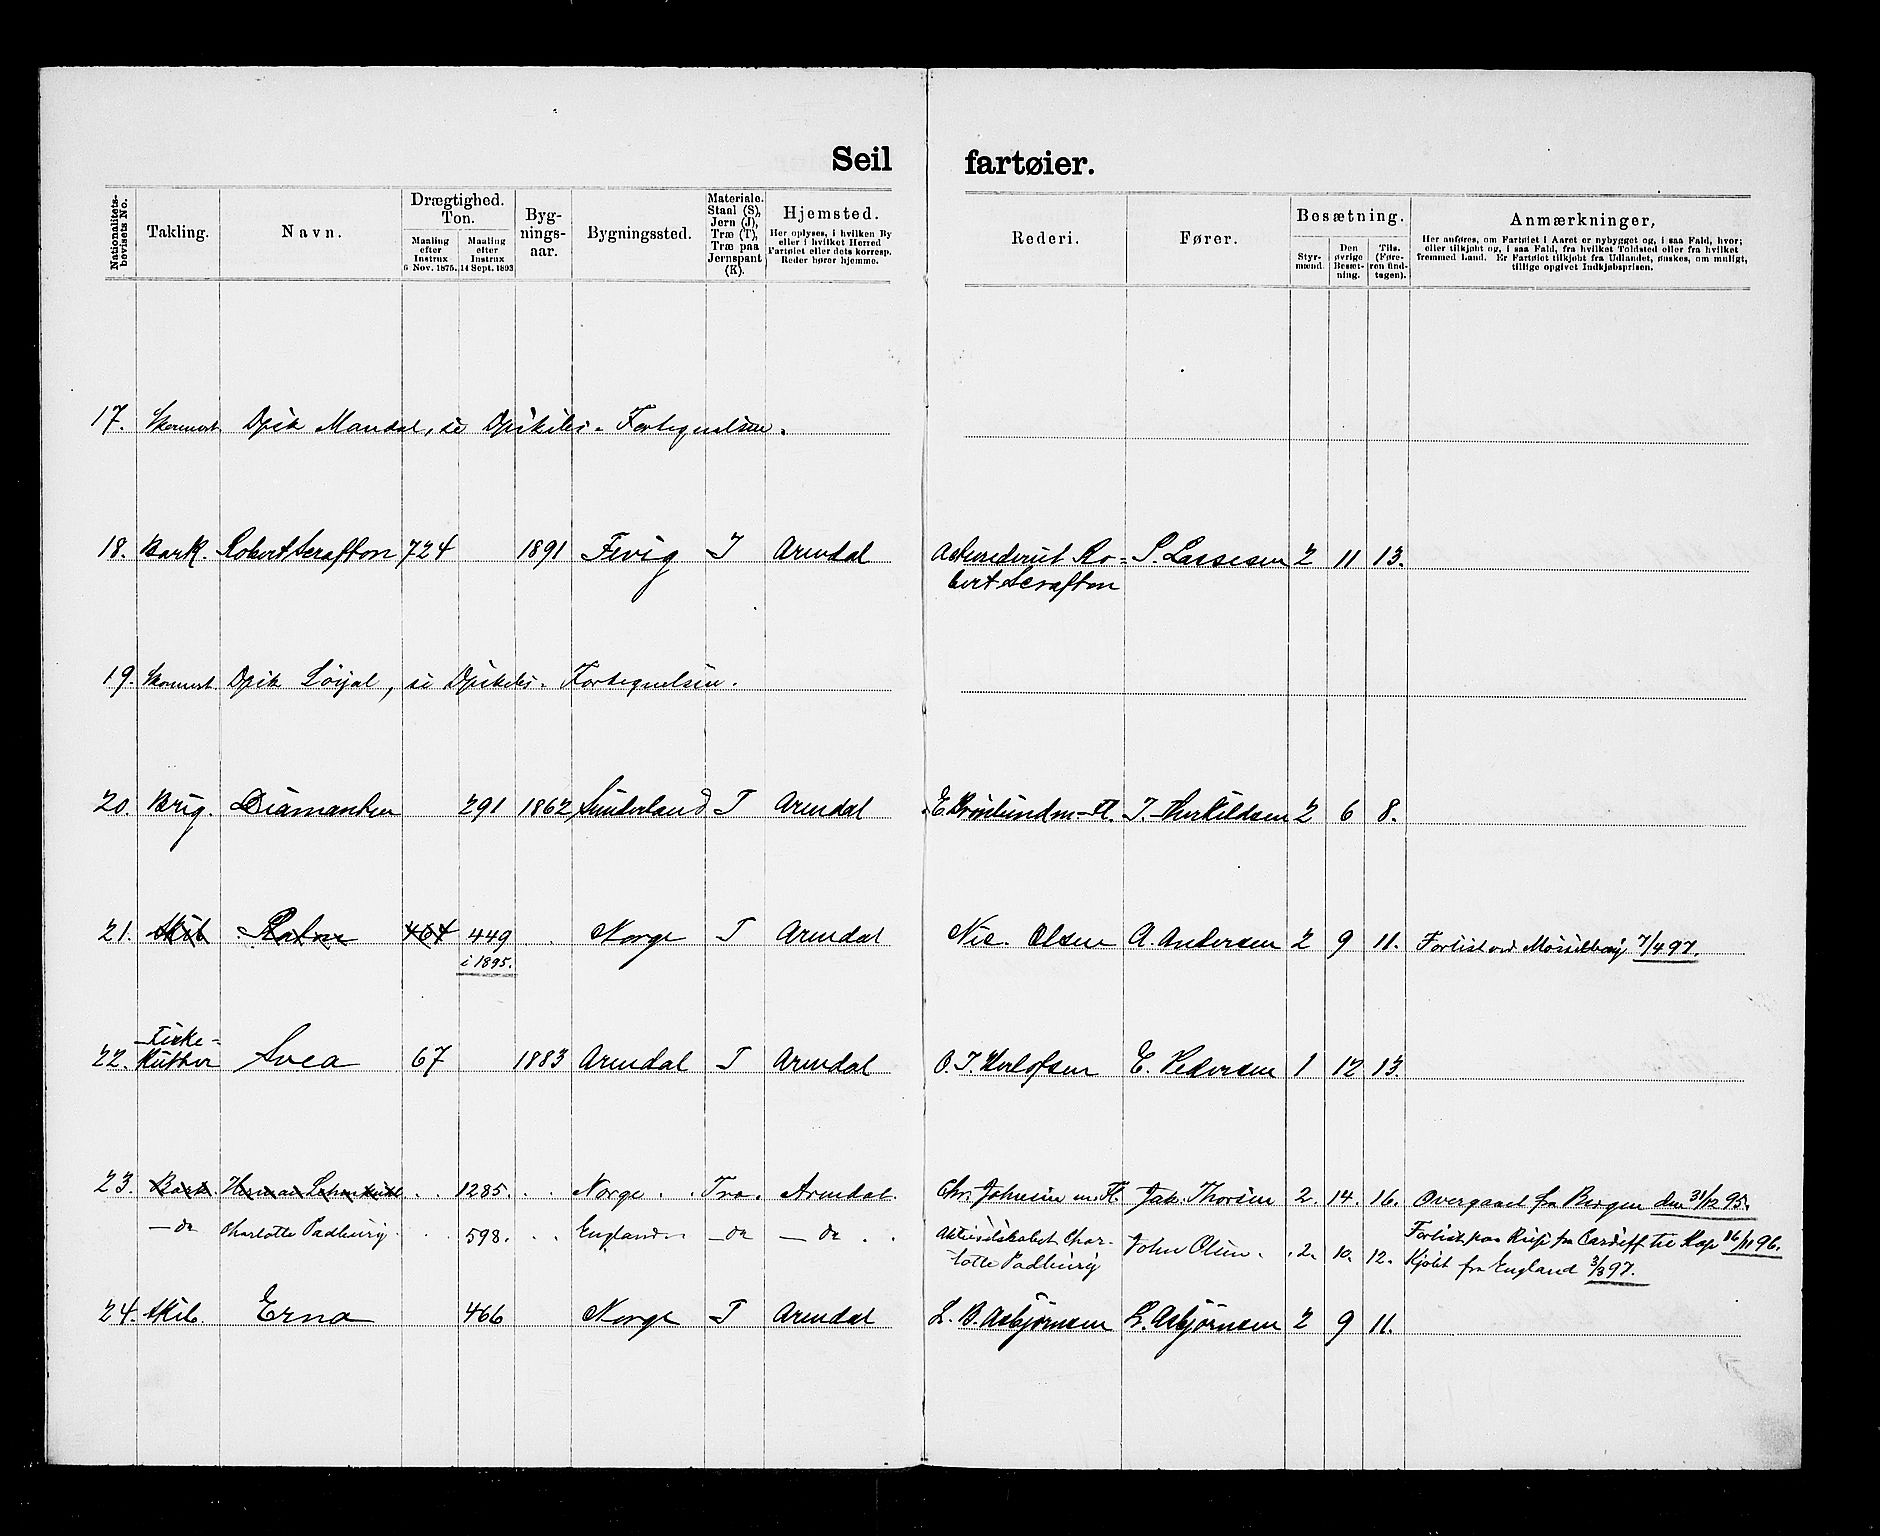 Seil
fartøier.
Nationalitets-
bevisets No.
Takling.
Navn.
Drægtighed.
Ton.
Maaling
efter
Instrux
6 Nov. 1875.
Maaling
efter
Instrux
14 Sept. 1893
Byg-
nings-
aar.
Bygningssted.
Materiale.
Staal (S),
Jern (J),
Træ (T),
Træ paa
Jernspant
(K).
Hjemsted.
Her oplyses, i hvilken By
eller i hvilket Herred
Fartøiet eller dets korresp.
Reder hører hjemme.
Rederi.
Fører.
Besætning.
Styr-
mænd.
Den
øvrige
Besæt-
ning.
Tils.
(Føre-
ren ind-
tagen).
Anmærkninger,
Her anføres, om Fartøiet i Aaret er nybygget og, i saa Fald, hvor;
eller tilkjøbt og, i saa Fald, fra hvilket Toldsted eller fra hvilket
fremmed Land. Er Fartøiet tilkjøbt fra Udlandet, ønskes, om muligt,
tillige opgivet Indkjøbsprisen.
17. Skonnert Mandal, se Fortegnelsen.
18. Bark. Robert Scrafton 724 1891 Fevig J Arendal Robert Scrafton S. Lassesen 2 11 13.
19. Skonnert Fortegnelsen.
20. Brig. Diamanten 291 1862 Sunderland T Arendal T. Therkildsen 2 6 8.
21. Skib 464 449 Norge T Arendal Nic. Olsen A. Andersen 2 9 11. Forlist ved 7/4 97.
i 1895.
Fiske-
22. Kutter Svea 67 1883 Arendal T Arendal O. T. Herlofsen E. Pedersen 1 12 13.
23. Bark Herman Lehmkuhl 1285. Norge. Træ. Arendal. Chr. Johnsen m. Fl. Jak. Thorsen 2. 14. 16. Overgaaet fra Bergen den 31/12 95.
— do Charlotte Padbury. 598. England. — do — do. Aktieselskabet Char-
lotte Padbury John Olsen. 2. 10. 12. Forlist paa Reise fra Cardiff til Kap 16/11 96.
Kjøbt fra England 3/3 97.
24. Skib. Erna 466 Norge T Arendal L. B. Asbjørnsen L. Asbjørnsen 2 9 11.